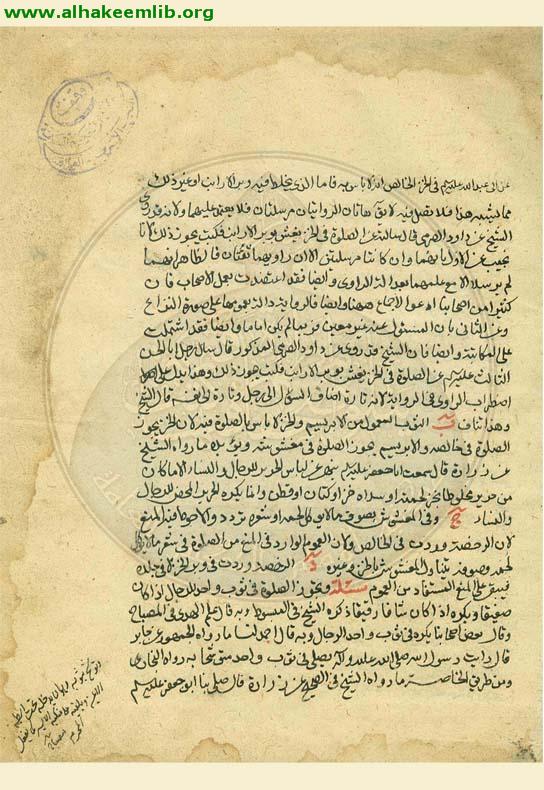 www.alhakeemlib.org
عن ابي عبد الله عليه السلام في الخز الخالص انه لا باس به فاما الذي يخلط فيه وبر الارانب او غير ذلك
مما يشبه هذا فلا تصل فيه لانا هاتان الروايتان مرسلتان فلا يعتمد عليهما ولانه قد روى
الشيخ عن داود الصرمي قال سالته عن الصلوة في الخز يغش بوبر الارانب فكتب يجوز ذلك لانا
نجيب عن الاول بانهما وان كانتا مرسلتين الا ان راويهما ثقتان فالظاهر انهما
لم يرسلا الا مع علمهما بعدالة الراوي وايضا فقد اعتضدت بعمل الاصحاب فان
كثيرا من اصحابنا ادعوا الاجماع ههنا وايضا فالرواية دالة بعمومها على صورة النزاع
وعن الثاني بان المسئول عنه غير معين فربما لم يكن اماما وايضا فقد اشتملت
على المكاتبة وايضا فان الشيخ قد روى عن داود الصرمي المذكور قال سال رجل ابا الحسن
الثالث عليه السلام عن الصلوة في الخز يغش بوبر الارانب فكتب يجوز ذلك وهذا يدل على
اضطراب الراوي في الرواية لانه تارة اضاف السؤال الى رجل وتارة الى نفسه قال الشيخ
وهذا تناف الثوب المعمول من الابريسم والخز لا باس بالصلوة فيه لان الخز يجوز
الصلوة في خالصه والابريسم يجوز الصلوة في مغشوشه ويؤيده ما رواه الشيخ
عن زرارة قال سمعت ابا جعفر عليه السلام ينهى عن لباس الحرير للرجال والنساء الا ما كان
من حرير مخلوط بخز لحمته او سداه خز او كتان او قطن وانما يكره الحرير المحض للرجال
والنساء وفي المغشوش بصوف ما لا يوكل لحمه او شعره تردد والاحوط فيه المنع
لان الرخصة وردت في الخالص ولان العموم الوارد في المنع من الصلوة في شعر ما لا يوكل
لحمه وصوفه يتناول المغشوش بالخز وغيره الرخصة وردت في وبر الخز لا في جلده
فيبقى على المنع المستفاد من العموم مسئلة ويجوز الصلوة في ثوب واحد للرجال اذا كان
صفيقا ويكره اذا كان شافا رقيقا ذكره الشيخ في المبسوط وبه قال علم الهدى في المصباح
وقال بعض اصحابنا يكره في ثوب واحد للرجال وبه قال احمد لنا ما رواه الجمهور عن جابر
قال رايت رسول الله صلى الله عليه وآله يصلي في ثوب واحد متوشحا به رواه البخاري
ومن طريق الخاصة ما رواه الشيخ في الصحيح عن زرارة قال صلى بنا ابو جعفر عليه السلام